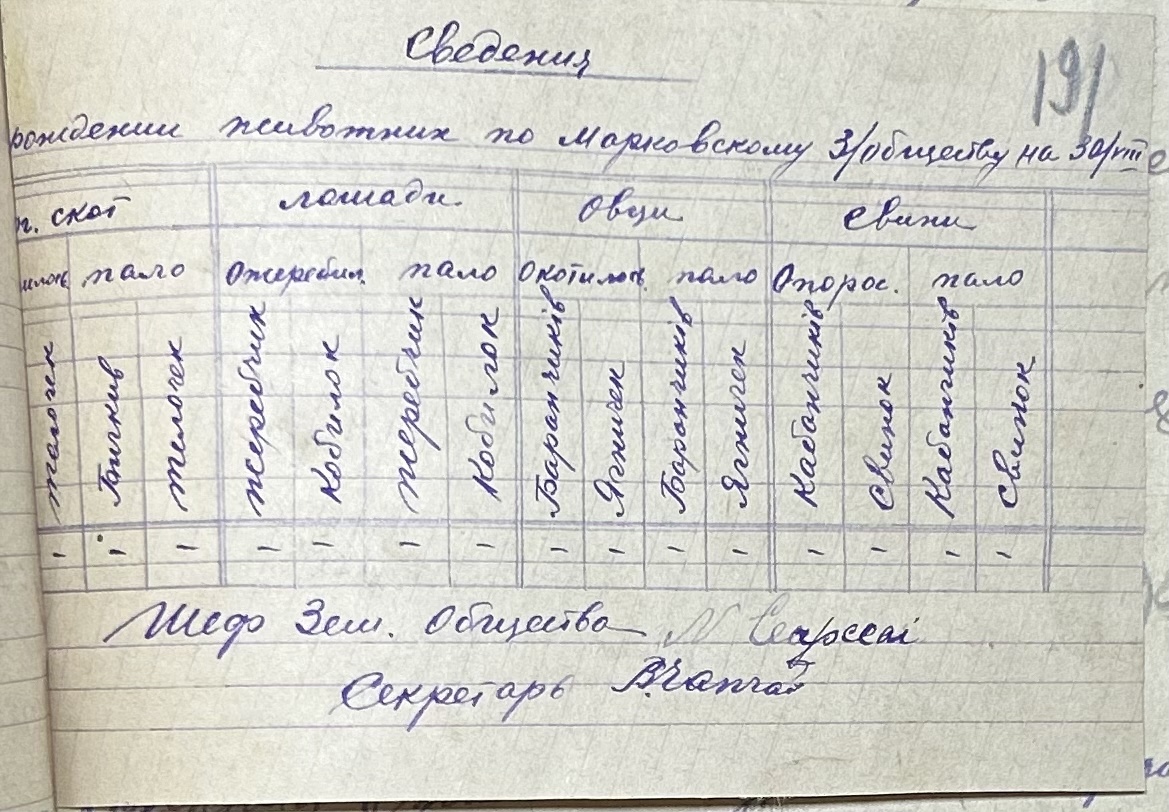 Сведения
191
рождении животних по Марковскому З/обществу на 30/VIII
г. скот лошади Овци свини
илось пало Ожеребил. пало Окотилось пало Опорос. пало
телочек Бичків телочек жеребчик Кобилок жеребчик Кобилок Баранчиків Ягничек Баранчиків Ягничек Кабанчиків свинок Кабанчиків свинок
- - - - - - - - - - - - - - -
Шеф Зем. Общества
Секретарь